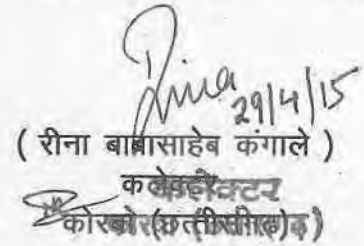 Rina
29/4/15
( रीना बाबासाहेब कंगाले )
कलेक्टर
कोरबा (छत्तीसगढ़)